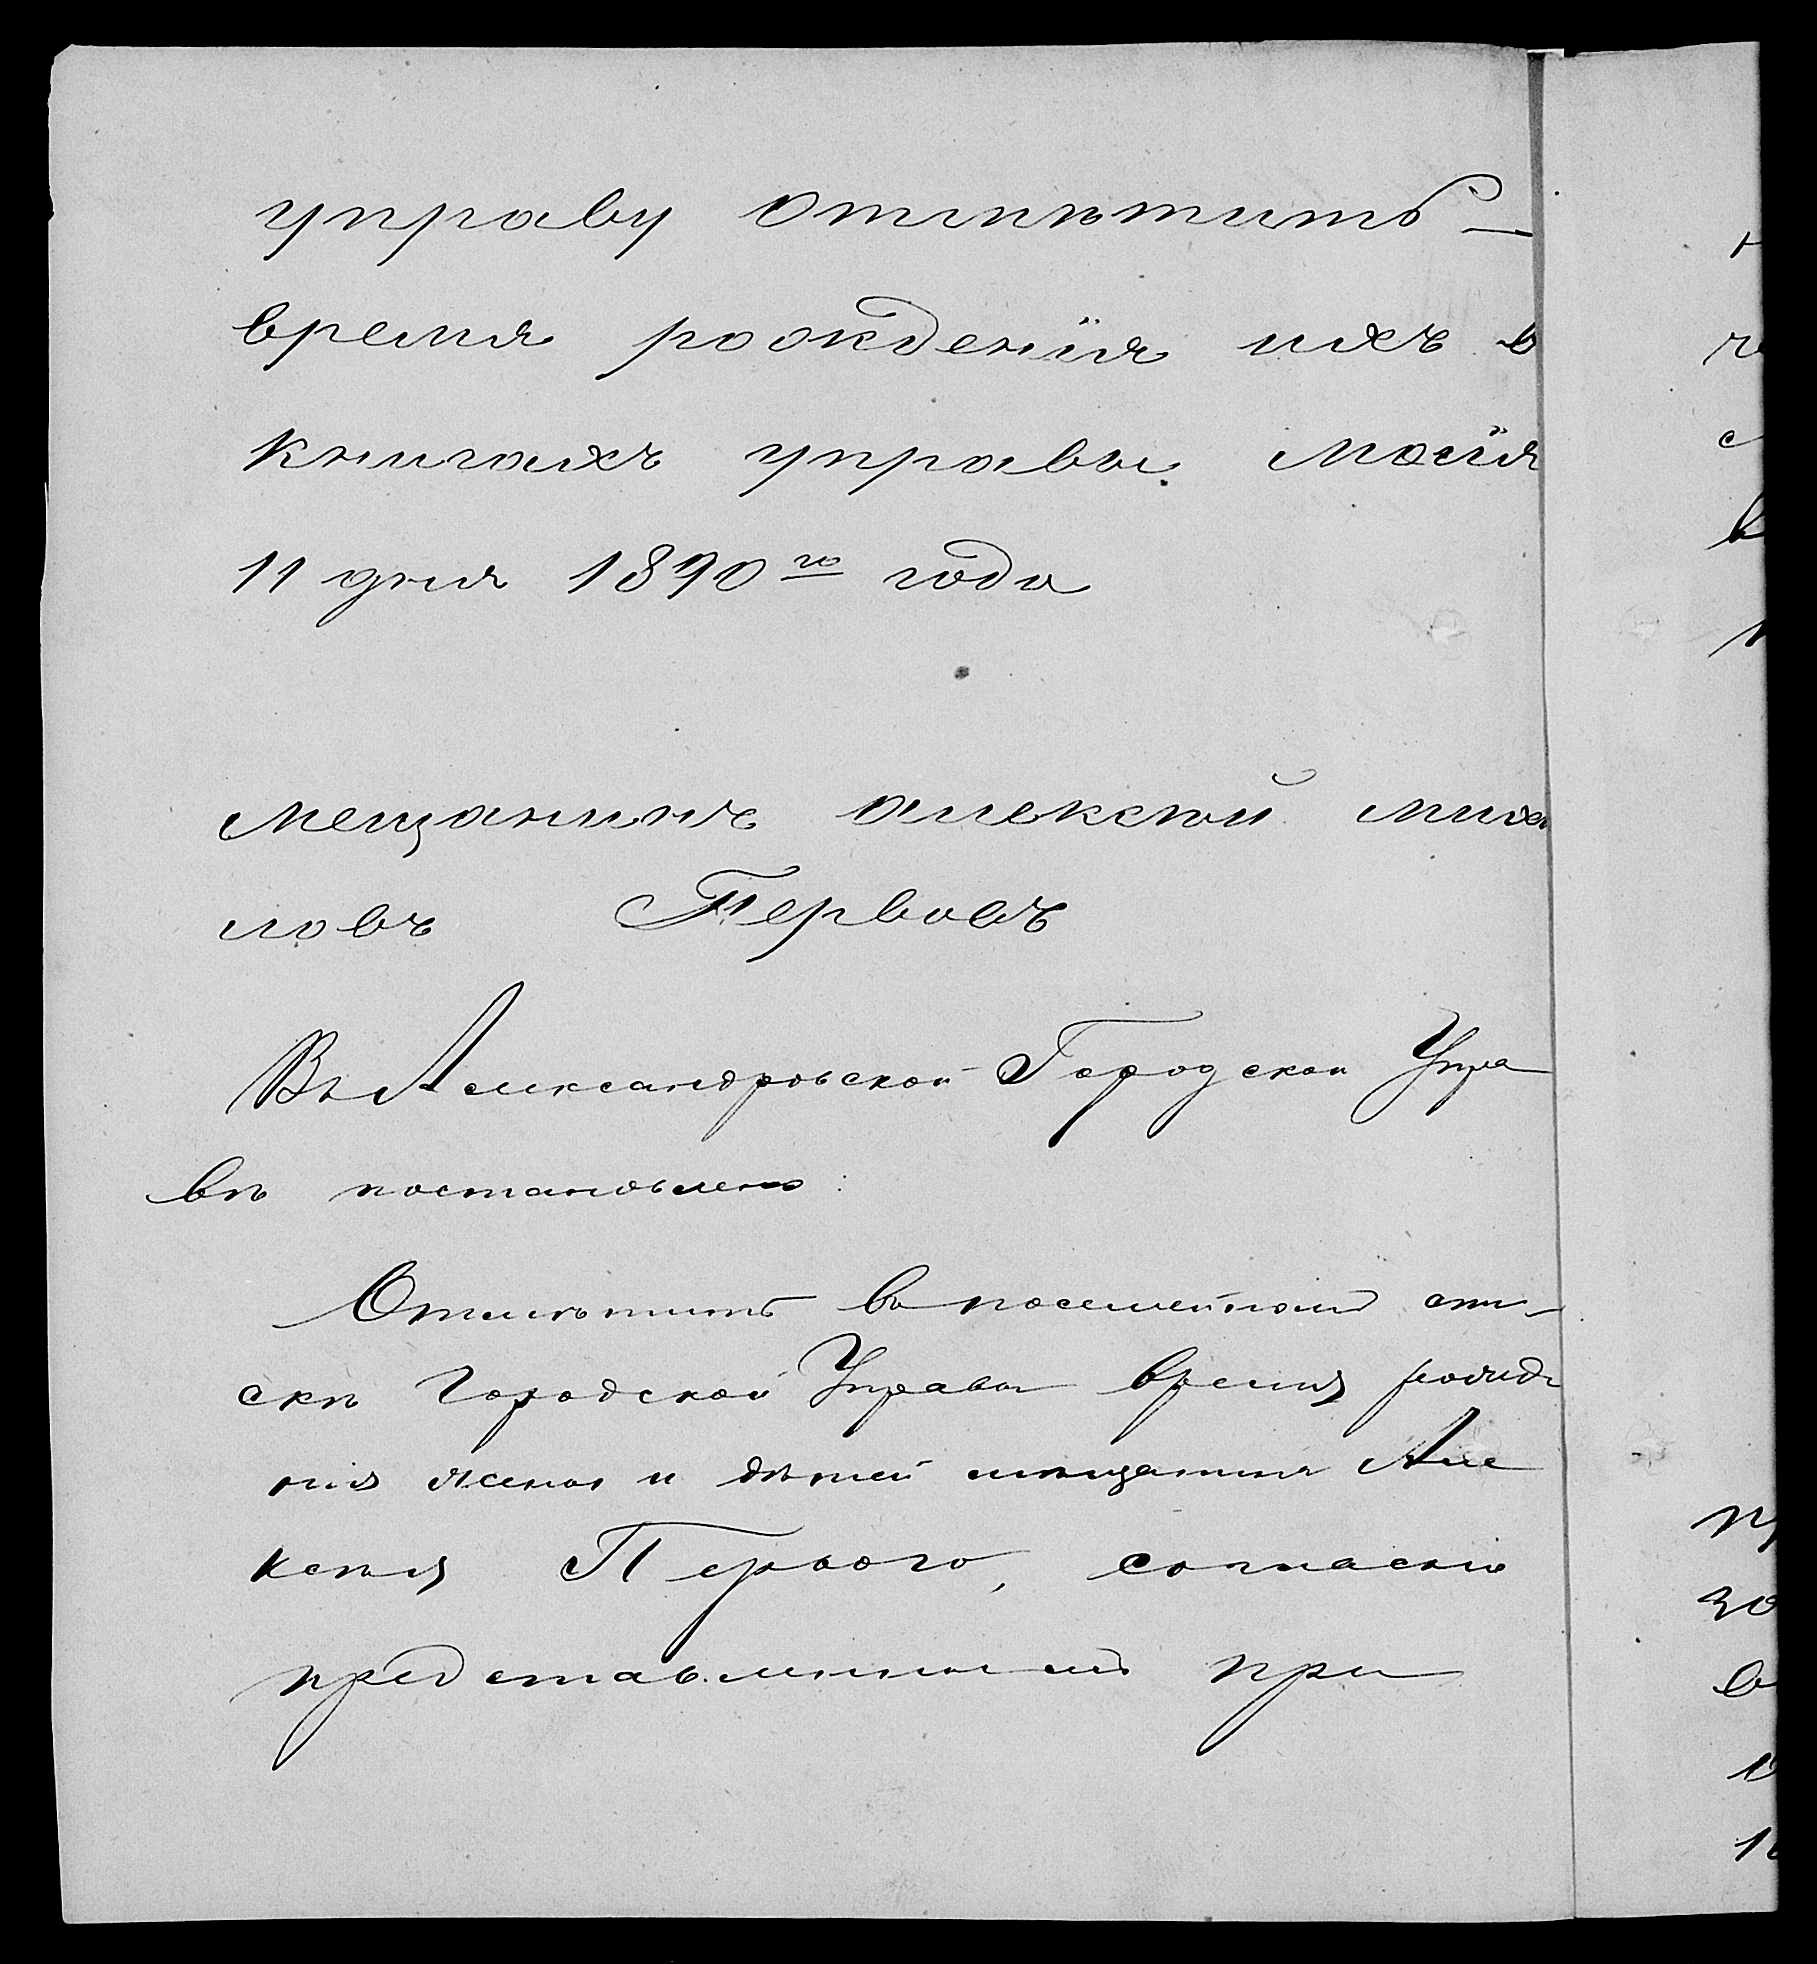 управу отмѣтить
время рожденїя ихъ в
книгахъ управы. Маїя
11 дня 1890го года
мещанинъ алексѣй миха
ловъ Первовъ
Въ Александровской Городской Упра
вѣ постановлено:
Отмѣтить въ посемейномъ спи-
скѣ Городской Управы время рожде
нія жены и дѣтей мѣщанина Але
ксѣя Первого, согласно
представленной при